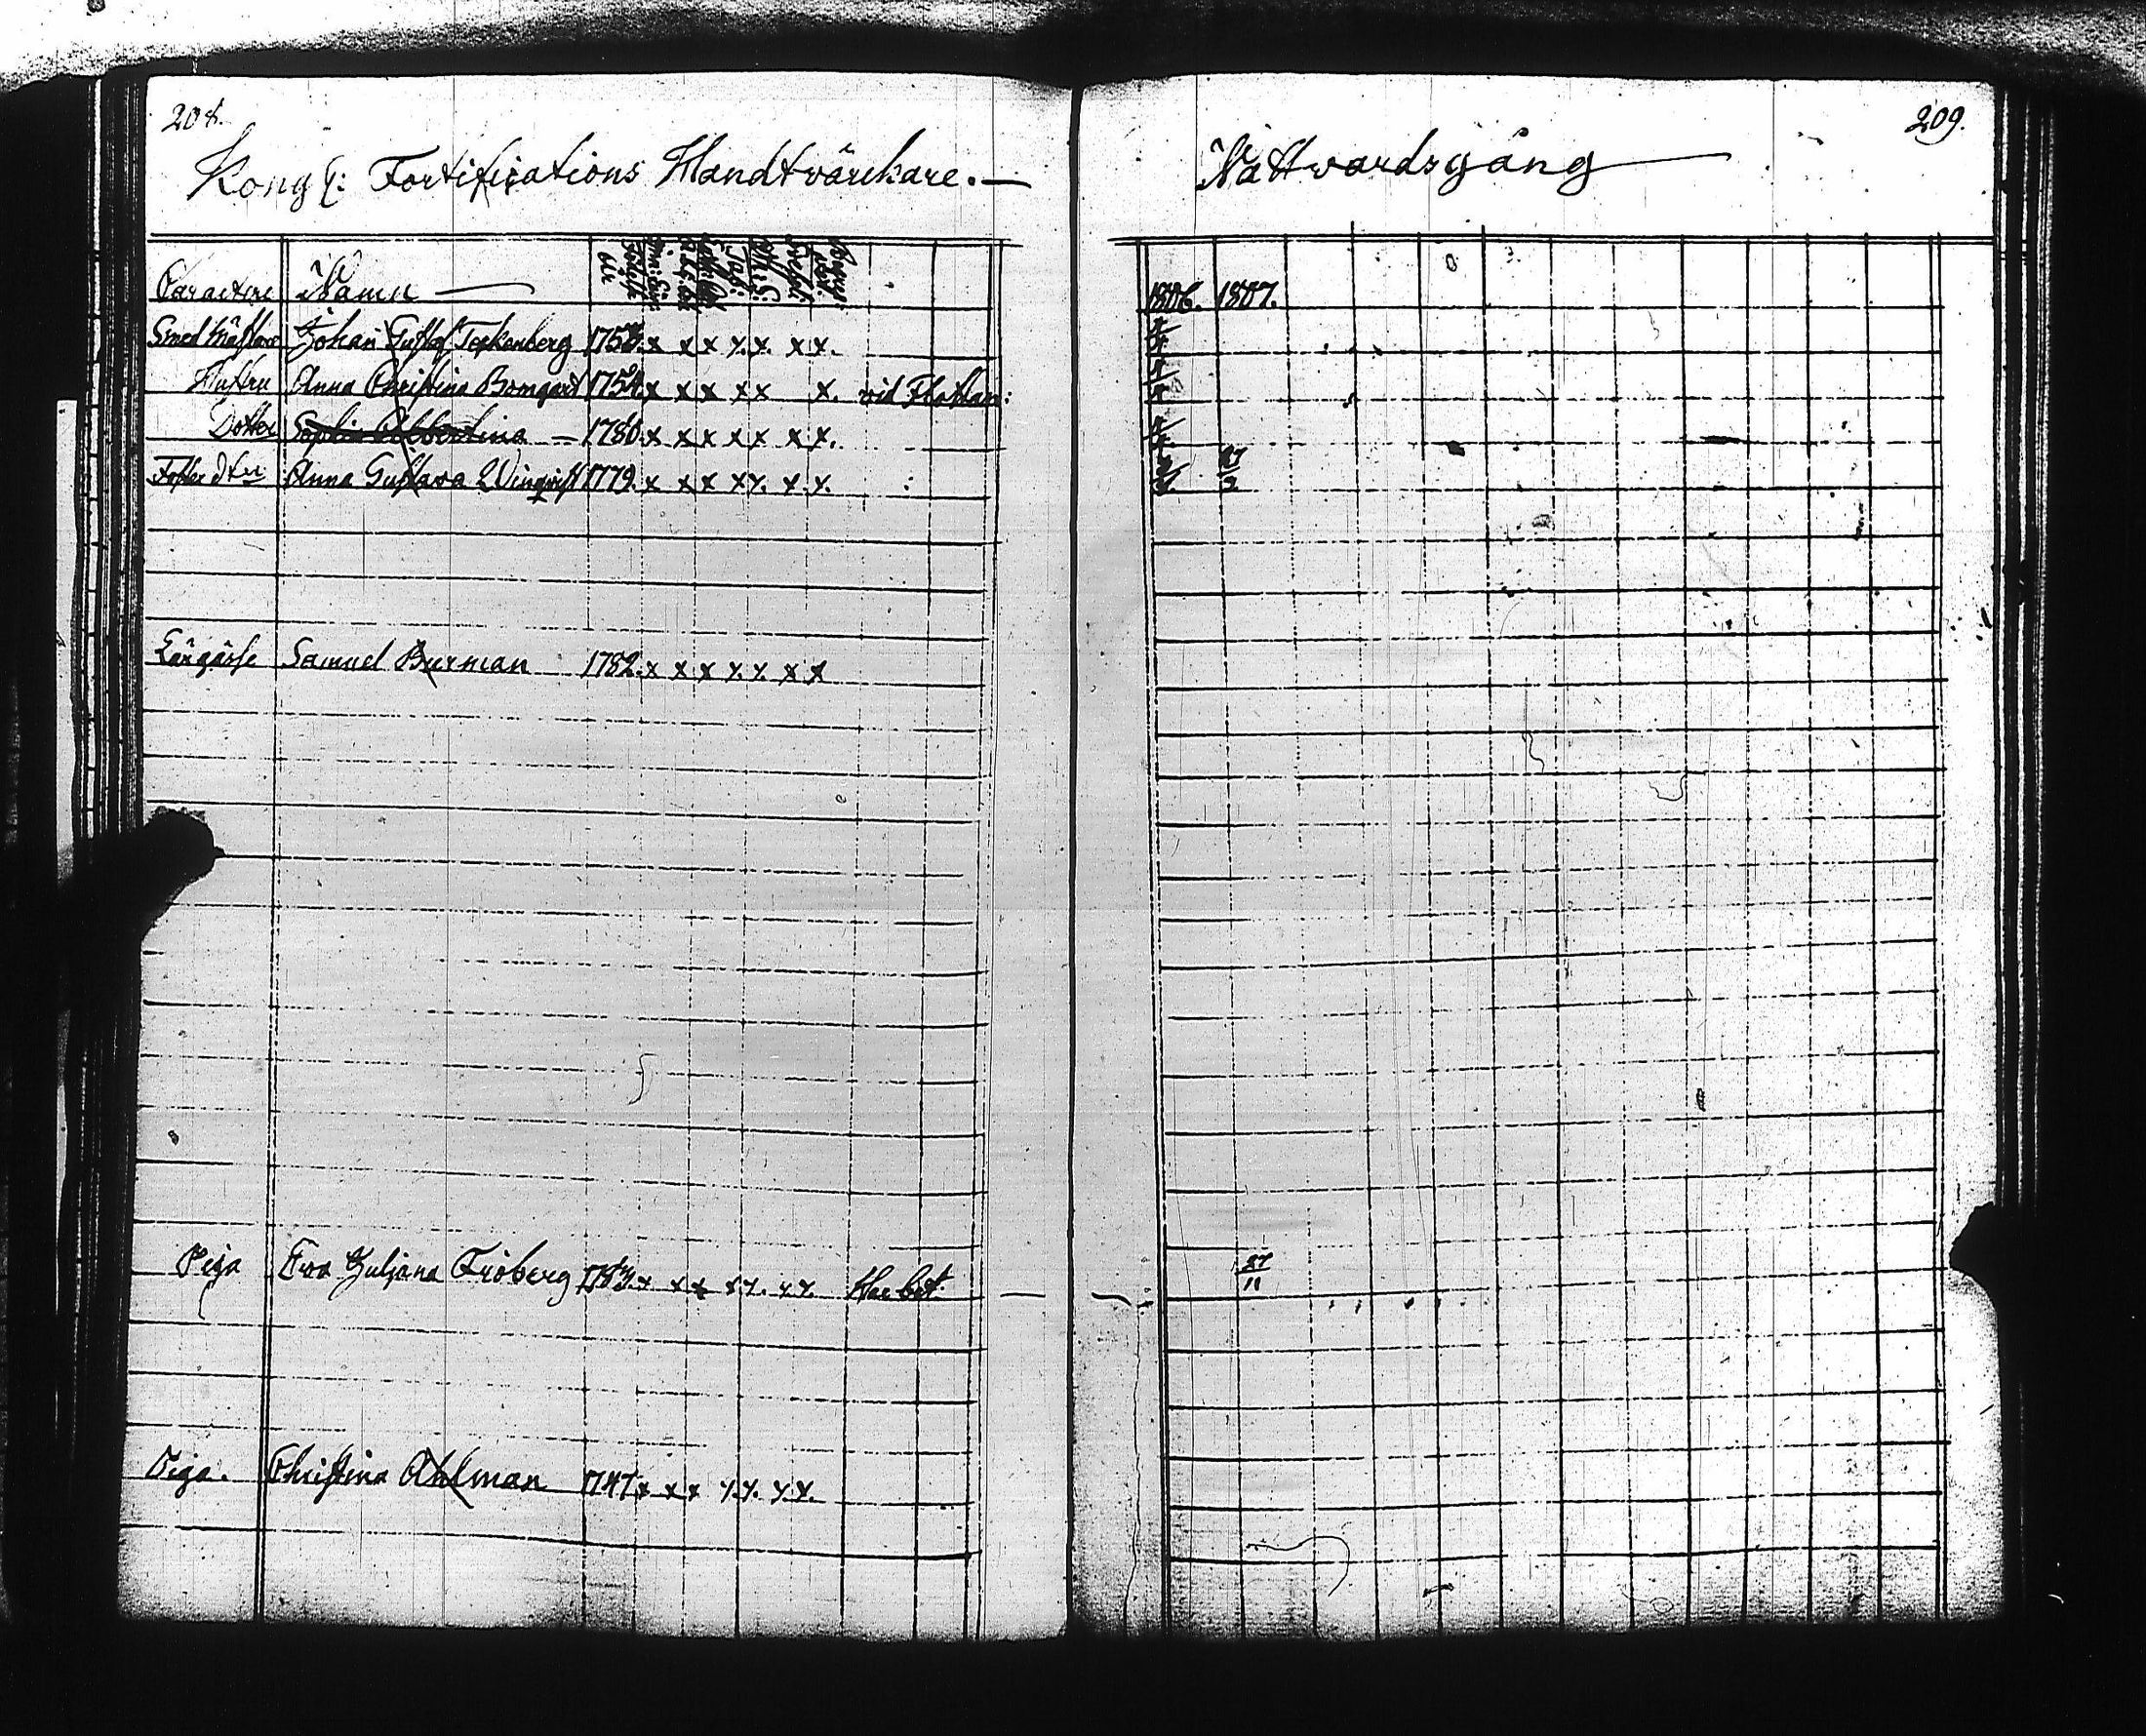 208.
Kongl: Fortifications Handtvärckare.—
Caractere Namn
Smed Mästare Johan Gustof Teckenberg 1750. x x x x. x. x x.
Hustru Anna Christina Bomgard 1754. x x x x x x. vid Flottan:
Dotter Sophia Albertina — 1780. x x x x x x x.
Foster dtr Anna Gustava Winqvist 1779. x x x x x. x. x.
Lärgåsse Samuel Burman 1782. x x x x. x. x x
Piga Eva Juljana Fröberg 1783. x x x x x. x x. Har bet.
Piga. Christina Ahlman 1747 x x x x. x. x. x.
209.
Nattvardsgång
1806. 1807.
27
11